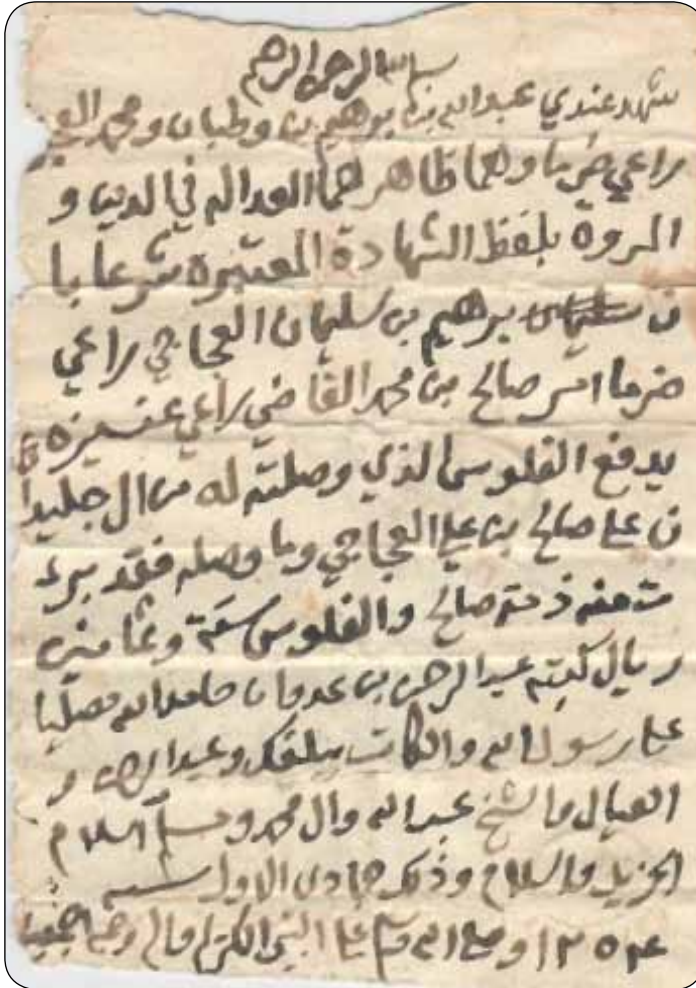 بسم الله الرحمن الرحيم
شهد عندي عبدالله بن بوهيم بن وطبان ومحمد
راعي ضرما وهما ظاهر هما العداله في الدين و
المروة بلفظ الشهادة المعتبره شرعا با
ن برهيم بن سليمان العجاجي راعي
ضرما امر صالح بن محمد القاضي راعي عنيزه
يدفع الفلوس الذي وصلته له من ال جليدا
ن على صالح بن علي العجاجي وما وصله فقد برء
ت منه ذمته صالح والفلوس ستة وثمانين
ريال كتبه عبدالرحمن بن عدوان حامدا لله مصليا
على رسول الله والكاتب يبلغك وعبدالرحمن و
العيال والشيخ عبدالله وال محمد وسلم السلام
الجزيل والسلام وذلك جمادى الاول سنه
وصلى الله وسلم على النبي الكريم واله وصحبه